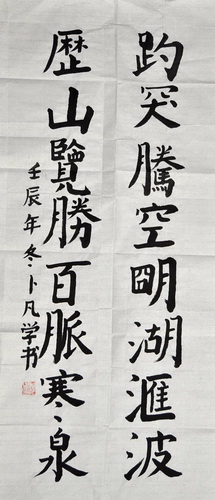 趵突騰空明湖滙波
歷山覽勝百脈寒泉
壬辰年冬卜凡学书